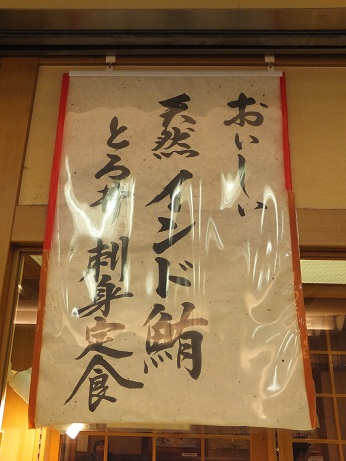 おいしい
天然インド鮪
とろ丼 刺身定食